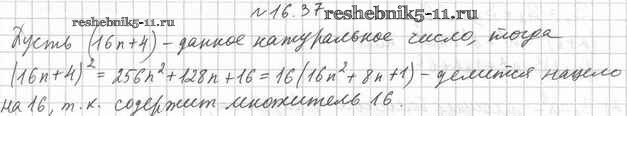 №16.37
reshebnik5-11.ru
Пусть (16n+4) - данное натуральное число, тогда
(16n+4)² = 256n² + 128n + 16 = 16(16n² + 8n + 1) - делится нацело
на 16, т.к. содержит множитель 16.
reshebnik5-11.ru